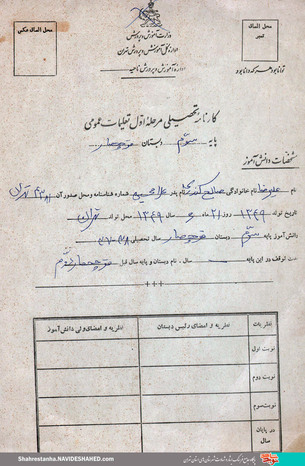 محل الصاق عکس
محل الصاق
تمبر
وزارت آموزش و پرورش
اداره کل آموزش و پرورش تهران
اداره آموزش و پرورش ناحیه
توانا بود هر که دانا بود
کارنامه تحصیلی مرحله اول تعلیمات عمومی
پایه سوم دبستان
مشخصات دانش آموز
نام علیرضا نام خانوادگی نام پدر غلامحسین شماره شناسنامه و محل صدور آن تهران
تاریخ تولد روز ۲۱ ماه ۶ سال ۱۳۴۹ محل تولد تهران
دانش آموز پایه سوم دبستان سال تحصیلی
مدت توقف در این پایه سال، نام دبستان و پایه سال قبل
نظریات
نظریه و امضای رئیس دبستان
نظریه و امضای ولی دانش آموز
نوبت اول
نوبت دوم
نوبت سوم
در پایان
سال
Shahrestanha.NAVIDESHAHED.com